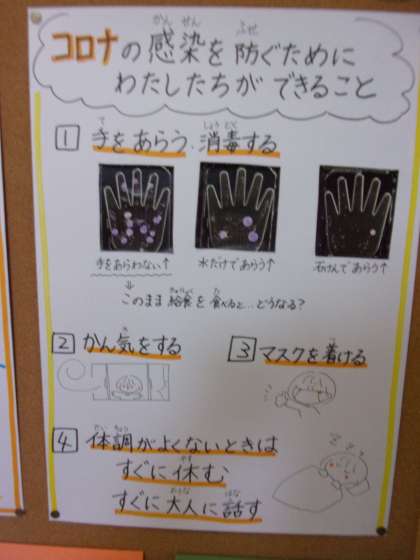 コロナの感染を防ぐために
わたしたちができること
1 手をあらう、消毒する
手をあらわない↑ 水だけであらう↑ 石けんであらう↑
⇓
このまま給食を食べると…どうなる?
2 かん気をする
3 マスクを着ける
4 体調がよくないときは
すぐに休む
すぐに大人に話す